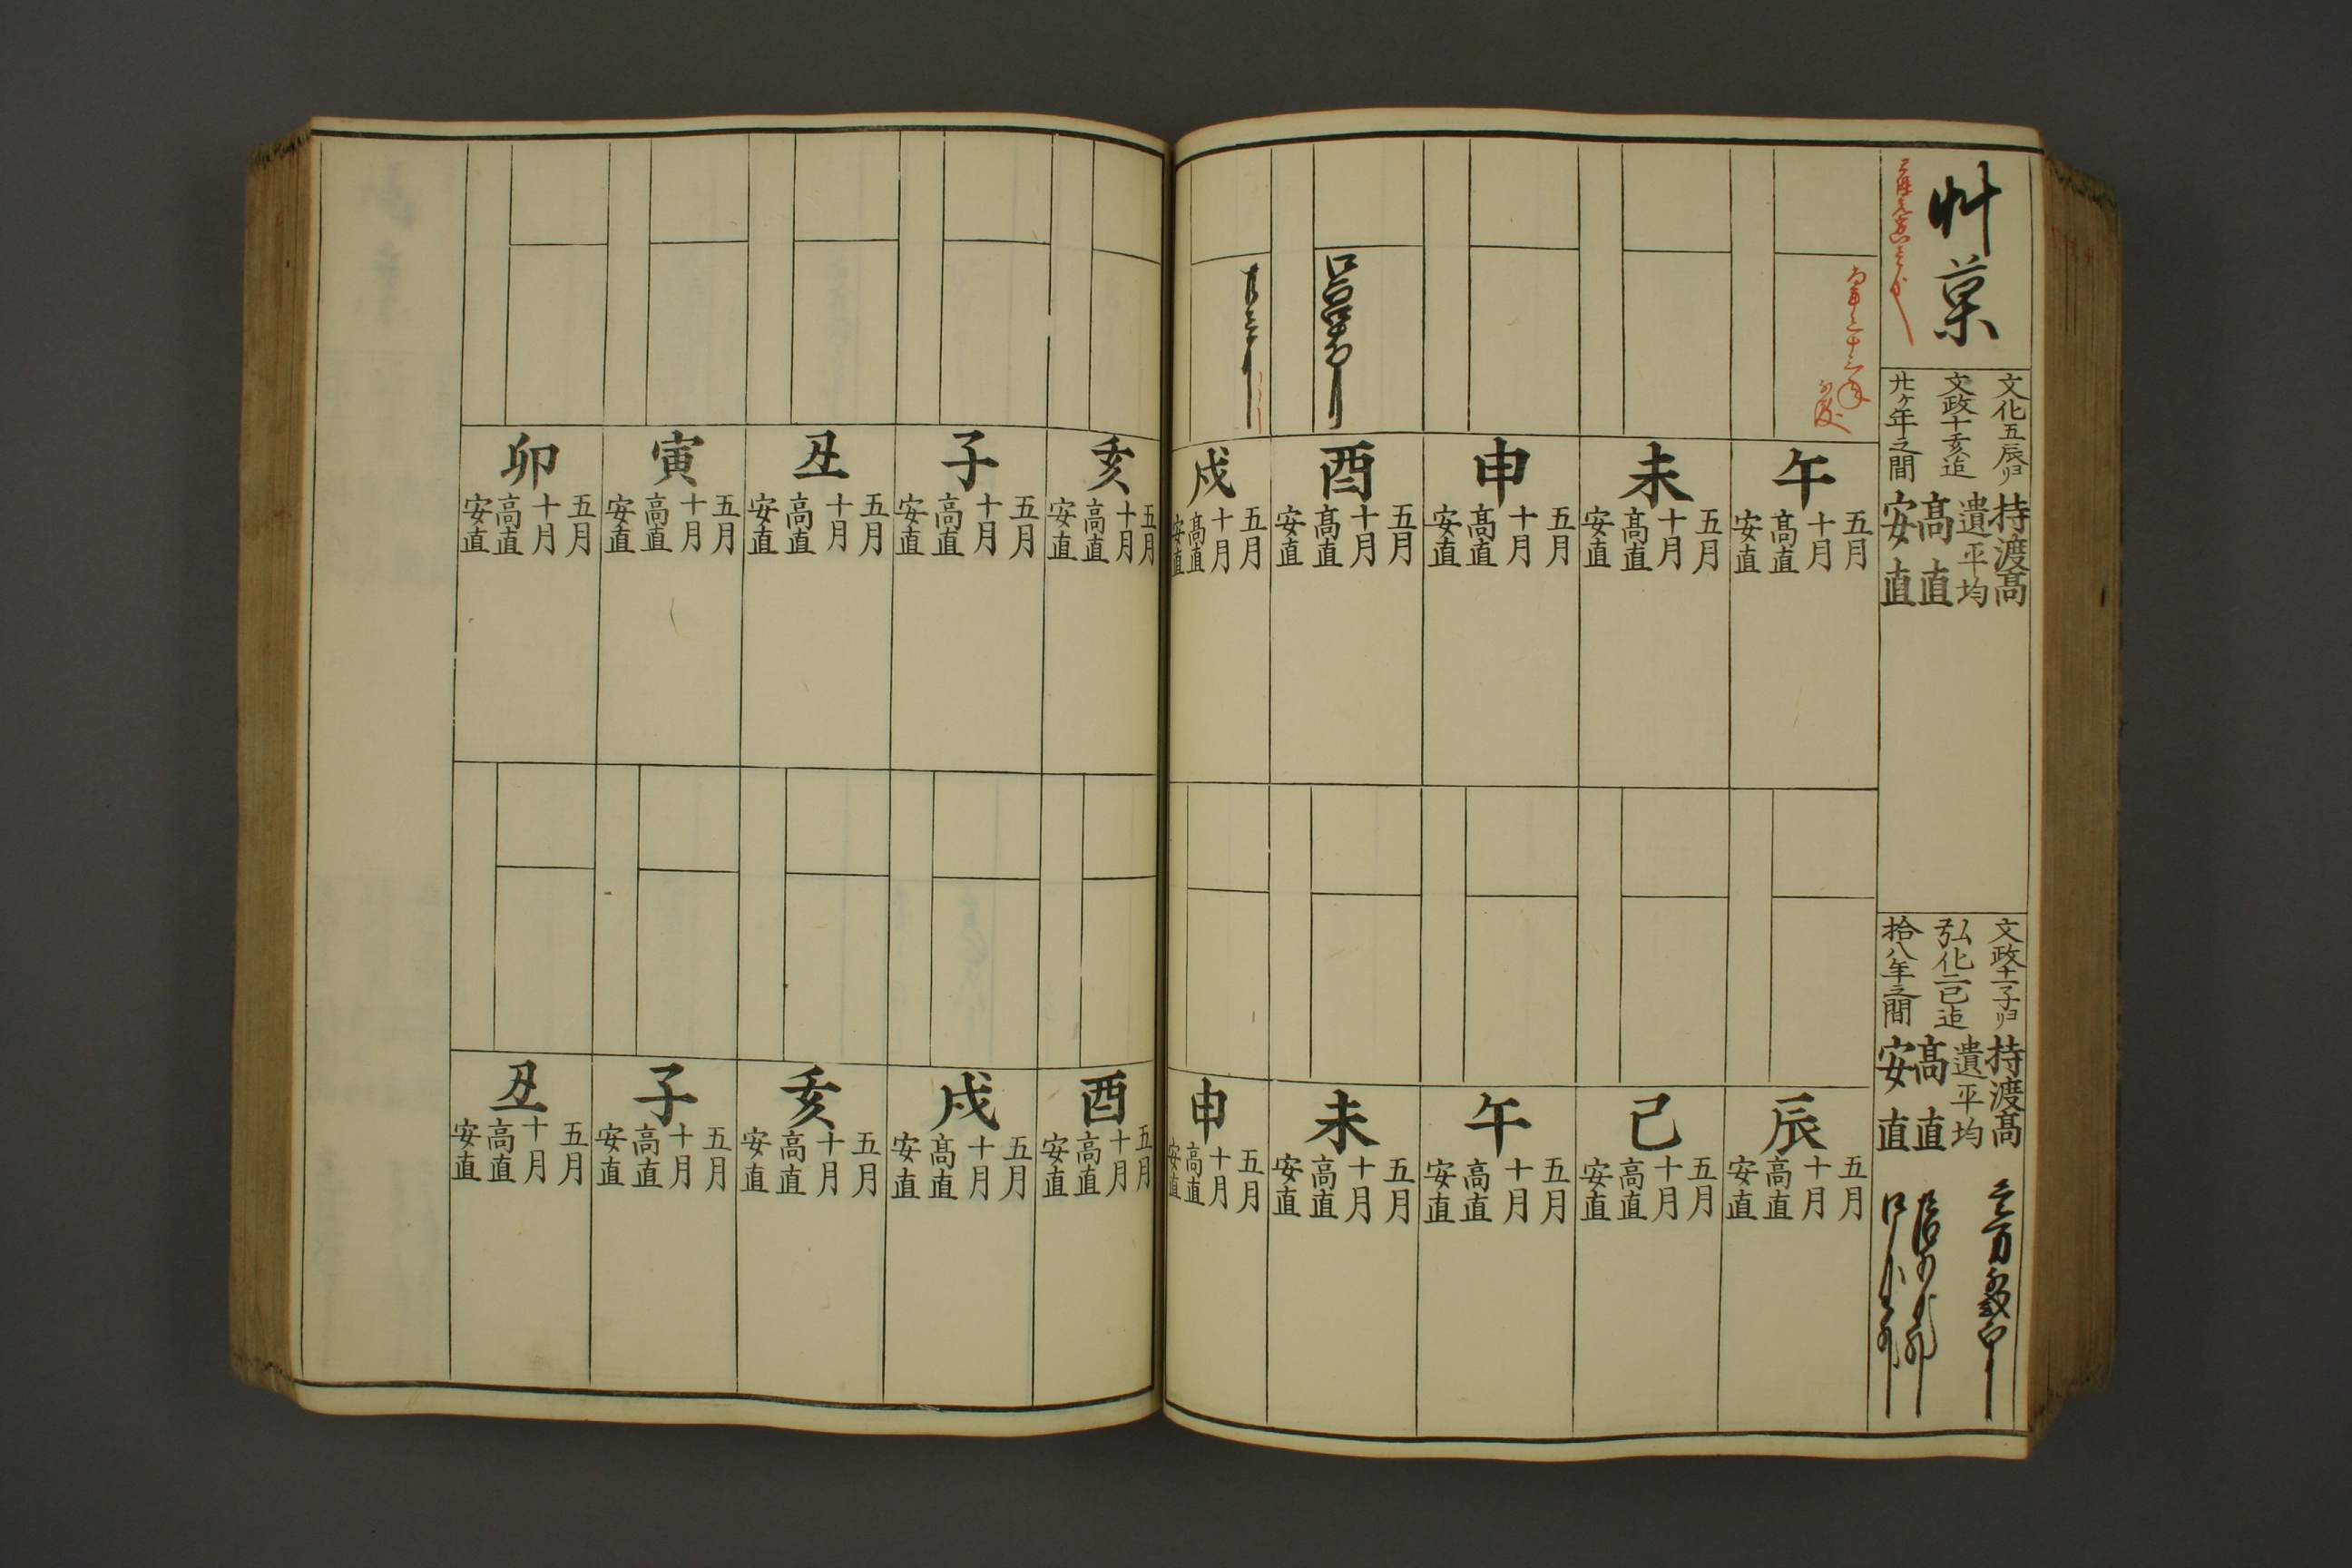 艸菓
文化五辰ヨリ
文政十亥迠
廾ケ年之間
持渡髙
遺平均
髙直
安直
文政十一子ヨリ
弘化二巳迠
拾八年之間
持渡髙
遺平均
髙直
安直
午
五月
十月
髙直
安直
未
五月
十月
髙直
安直
申
五月
十月
髙直
安直
酉
五月
十月
髙直
安直
戌
五月
十月
髙直
安直
辰
五月
十月
髙直
安直
巳
五月
十月
髙直
安直
午
五月
十月
髙直
安直
未
五月
十月
髙直
安直
申
五月
十月
髙直
安直
亥
五月
十月
髙直
安直
子
五月
十月
髙直
安直
丑
五月
十月
髙直
安直
寅
五月
十月
髙直
安直
卯
五月
十月
髙直
安直
酉
五月
十月
髙直
安直
戌
五月
十月
髙直
安直
亥
五月
十月
髙直
安直
子
五月
十月
髙直
安直
丑
五月
十月
髙直
安直